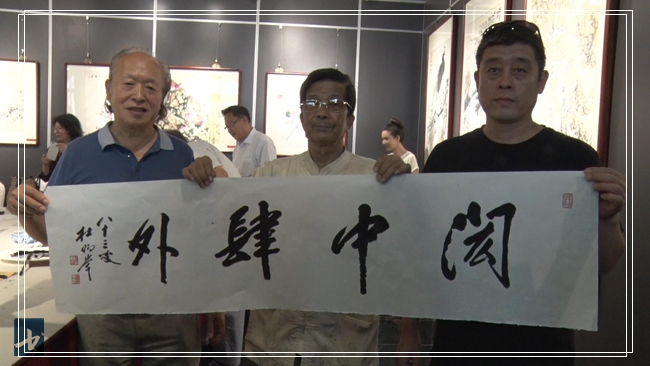 闳中肆外
八十三叟
杜